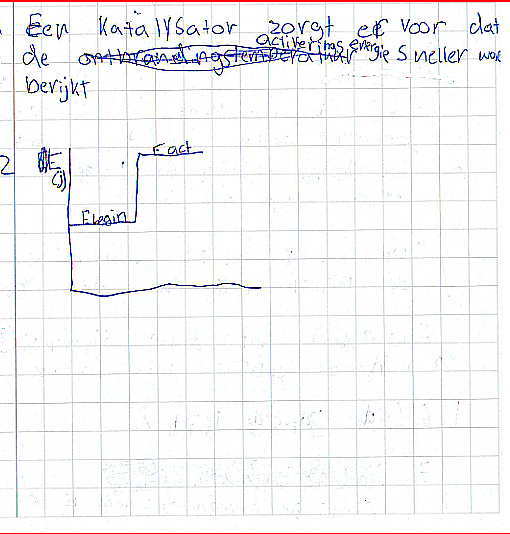 Een Katalysator zorgt er voor dat
de ontbrandingstemperatuur activerings energie sneller wor
berijkt
2 E Eact
(J)
Ebegin